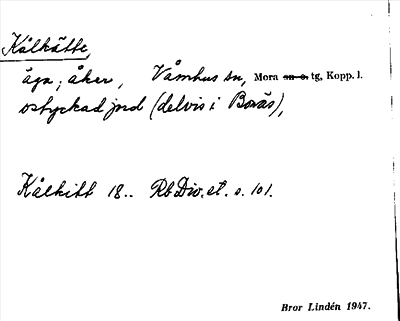 Kålkätte,
äga; åker, Våmhus sn, Mora sn o. tg, Kopp. l.
ostyckad jord (delvis i Borås),
Kålkitt 18.. Rb Div. et. s. 101.
Bror Lindén 1947.